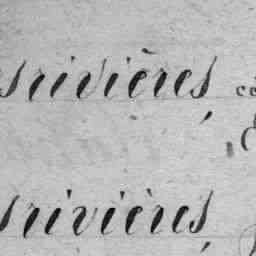 srivières
srivières